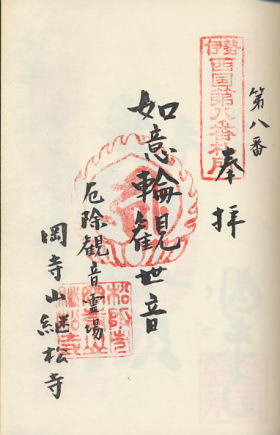 第八番
伊勢西国第八番札所
奉拝
如意輪観世音
厄除観音霊場
岡寺山継松寺